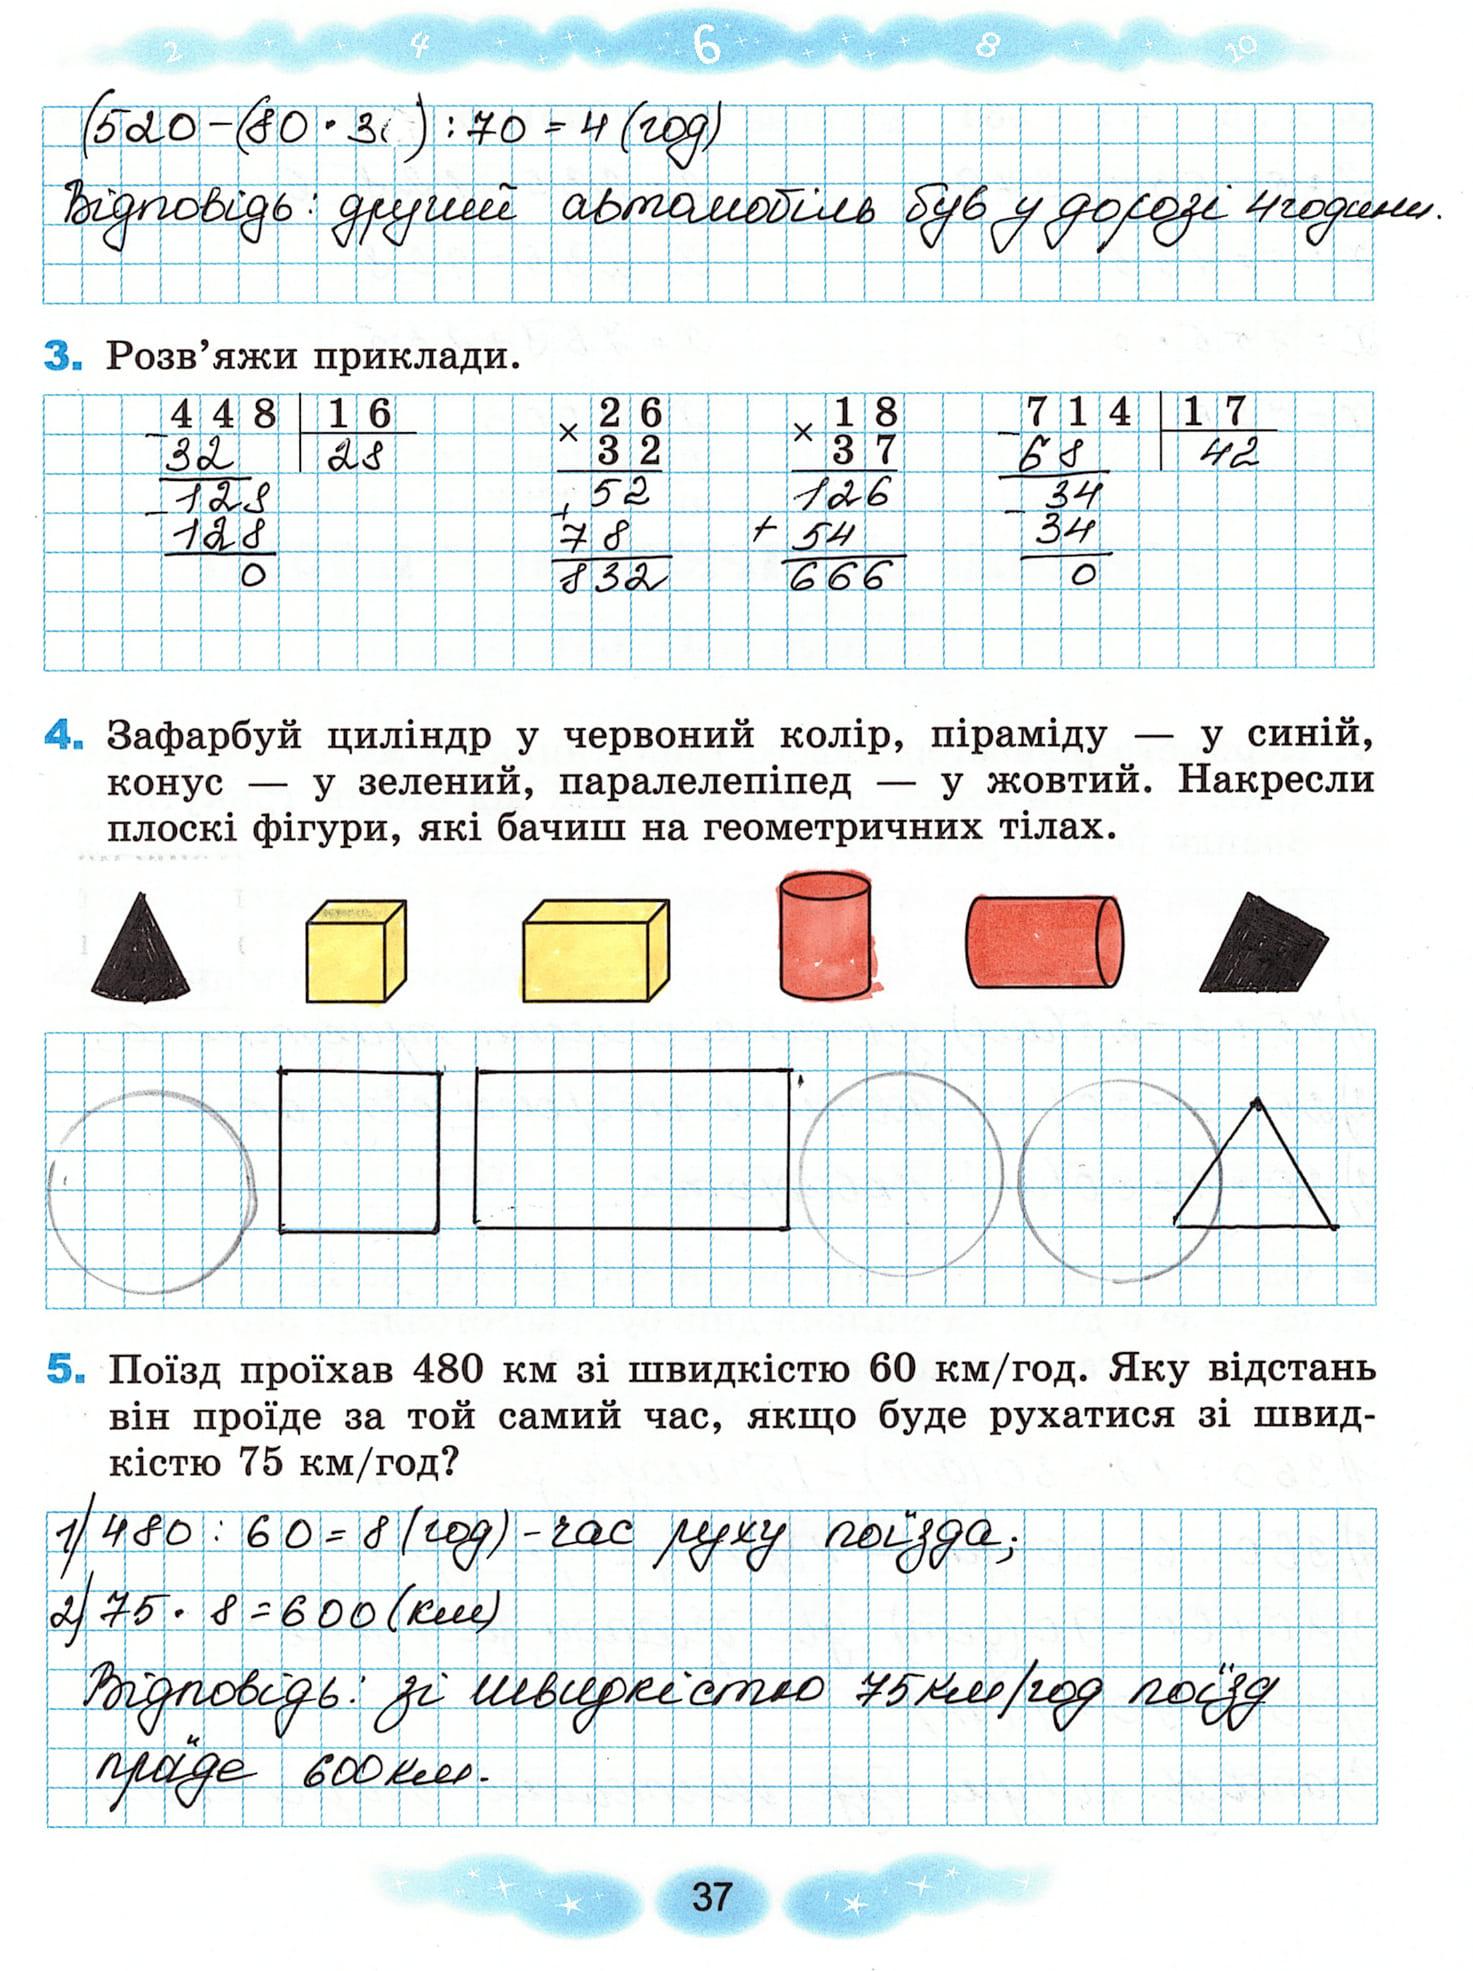 2 4 6 8 10
(520-(80·3)):70=4(год)
Відповідь: другий автомобіль був у дорозі 4 години.
3. Розв’яжи приклади.
448 16 × 26 × 18 714 17
- 32 28 32 37 - 68 42
- 128 + 52 126 - 34
128 78 + 54 34
0 832 666 0
4. Зафарбуй циліндр у червоний колір, піраміду — у синій,
конус — у зелений, паралелепіпед — у жовтий. Накресли
плоскі фігури, які бачиш на геометричних тілах.
5. Поїзд проїхав 480 км зі швидкістю 60 км/год. Яку відстань
він проїде за той самий час, якщо буде рухатися зі швид-
кістю 75 км/год?
1) 480 : 60 = 8 (год) - час руху поїзда;
2) 75 · 8 = 600 (км)
Відповідь: зі швидкістю 75 км/год поїзд
проїде 600 км.
37